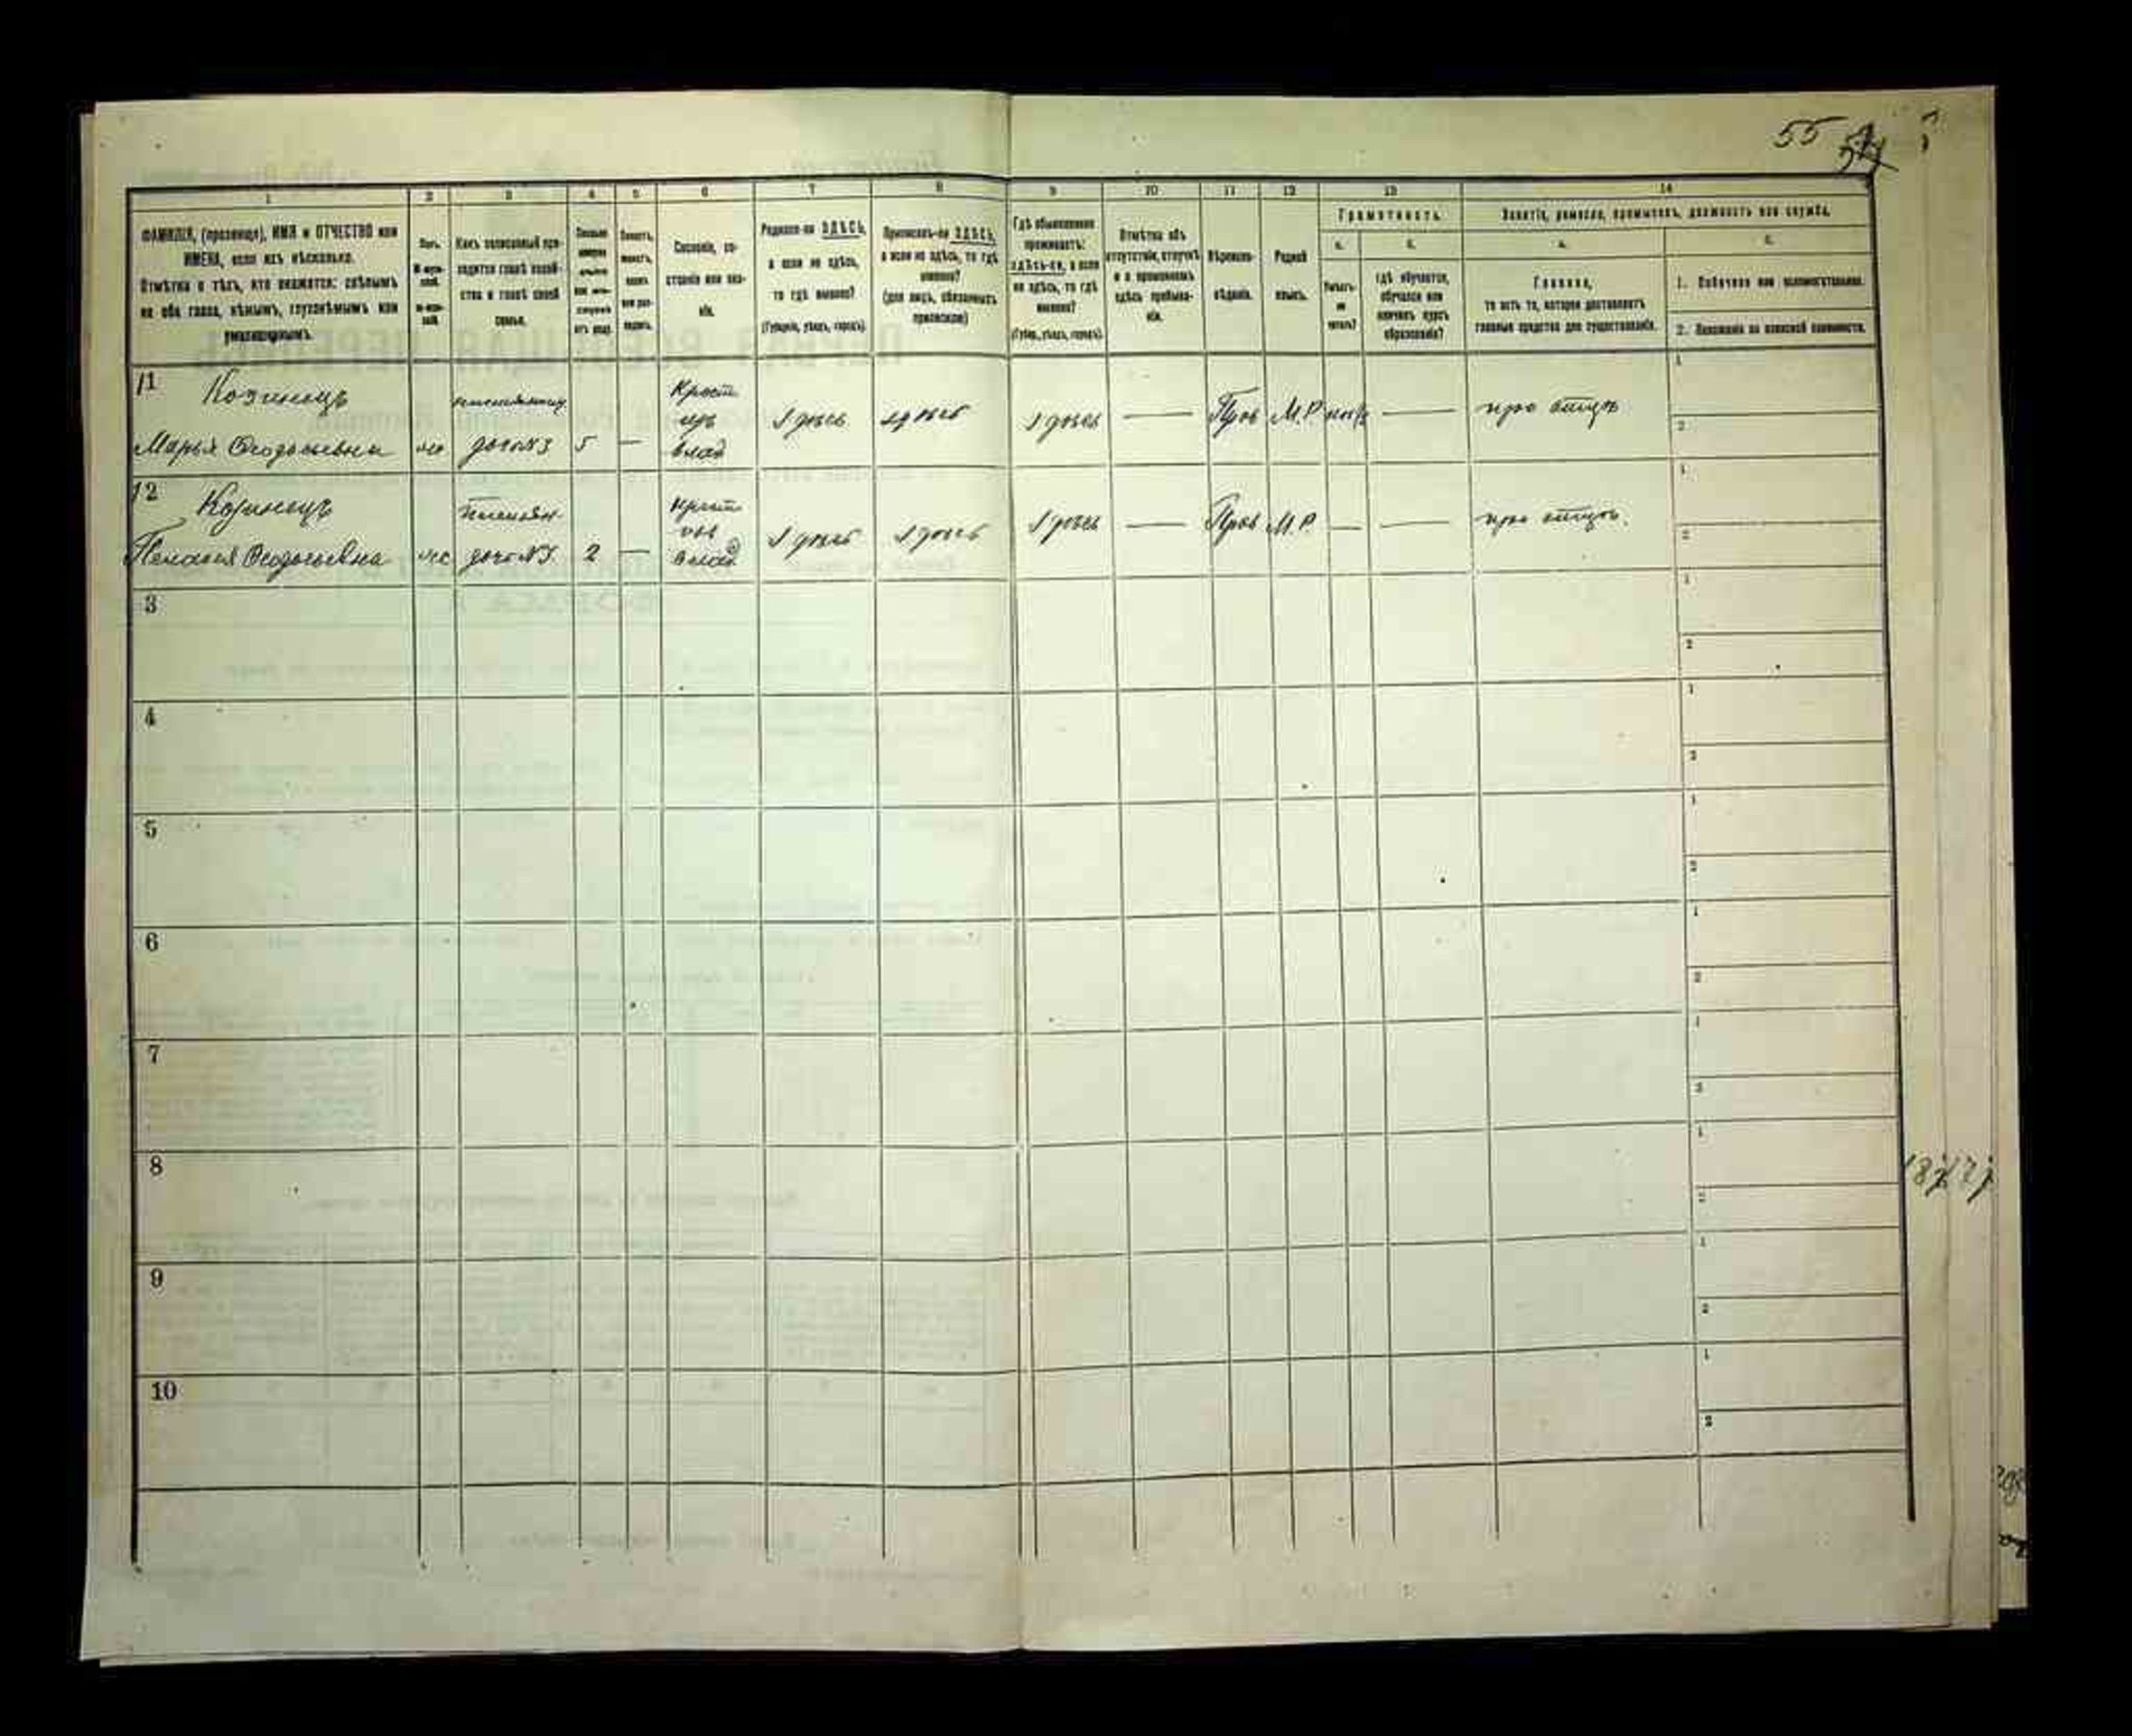 55
1 2 3 4 5 6 7 8 9 10 11 12 13 14
ФАМИЛІЯ, (прозвище), ИМЯ и ОТЧЕСТВО или
ИМЕНА, если ихъ нѣсколько.
Отмѣтка о тѣхъ, кто окажется: слѣпымъ
на оба глаза, нѣмымъ, глухонѣмымъ или
умалишеннымъ.
Полъ.
Какъ записанный при-
ходится главѣ хозяй-
ства и главѣ своей
семьи.
Сословіе, со-
стояніе или зва-
ніе.
Родился-ли ЗДѢСЬ,
а если не здѣсь,
то гдѣ именно?
(Губернія, уѣздъ, городъ).
Приписанъ-ли ЗДѢСЬ,
а если не здѣсь, то гдѣ
именно?
(для лицъ, обязанныхъ
припискою)
Гдѣ обыкновенно
проживаетъ:
здѣсь-ли, а если
не здѣсь, то гдѣ
именно?
(Губер., уѣздъ, городъ).
Отмѣтка объ
отсутствіи, отлучкѣ
и о временномъ
здѣсь пребыва-
ніи.
Вѣроиспо-
вѣданіе.
Родной
языкъ.
Грамотность.
а. б.
Умѣетъ-
ли
читать?
Гдѣ обучается,
обучался или
кончилъ курсъ
образованія?
Занятіе, ремесло, промыселъ, должность или служба.
а.
Главное,
то есть то, которое доставляетъ
главныя средства для существованія.
б.
1. Побочное или вспомогательное.
2. Положеніе по воинской повинности.
11
Козинецъ
Марья Феодосьевна
дочь №3 5 —
Крест
изъ
влад
Здѣсь Здѣсь Здѣсь — Прав М.Р. — при отцѣ
1
2
12
Козинецъ
Пелагея Феодосьевна
дочь №3 2 —
Крест
влад
Здѣсь Здѣсь Здѣсь — Прав М.Р. — — при отцѣ.
1
2
3
1
2
4
1
2
5
1
2
6
1
2
7
1
2
8
1
2
9
1
2
10
1
2